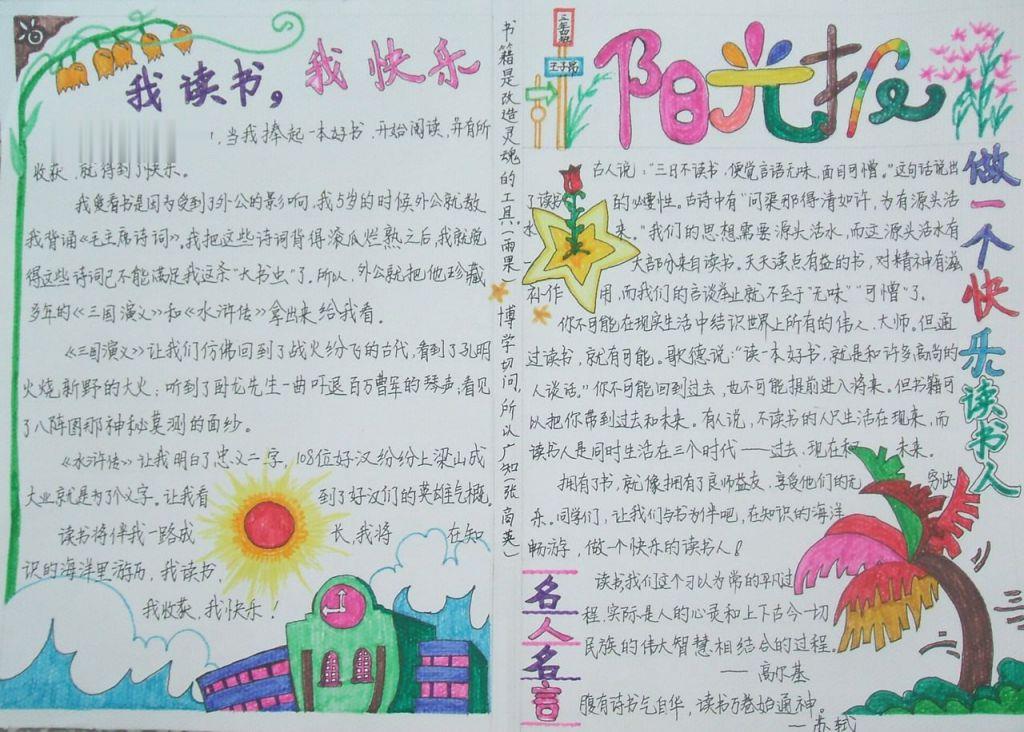 我读书，我快乐
，当我捧起一本好书，开始阅读，并有所
收获，就得到了快乐。
我爱看书是因为受到了外公的影响，我5岁的时候外公就教
我背诵《毛主席诗词》，我把这些诗词背得滚瓜烂熟之后，我就觉
得这些诗词已不能满足我这条“大书虫”了，所以，外公就把他珍藏
多年的《三国演义》和《水浒传》拿出来给我看。
《三国演义》让我们仿佛回到了战火纷飞的古代，看到了孔明
火烧新野的大火；听到了卧龙先生一曲吓退百万曹军的琴声；看见
了八阵图那神秘莫测的面纱。
《水浒传》让我明白了忠义二字，108位好汉纷纷上梁山成
大业就是为了个义字。让我看到了好汉们的英雄气概。
读书将伴我一路成长，我将在知
识的海洋里游历，我读书，
我收获，我快乐！
书籍是改造灵魂的工具（雨果）
博学切问，所以广知（张高英）
三年四班
王子昂
阳光报
做一个快乐读书人
古人说：“三日不读书，便觉言语无味，面目可憎。”这句话说出
了读书的必要性。古诗中有“问渠那得清如许，为有源头活
水来。”我们的思想需要源头活水，而这源头活水有
大部分来自读书。天天读点有益的书，对精神有滋
补作用，而我们的言谈举止就不至于“无味”“可憎”了。
你不可能在现实生活中结识世界上所有的伟人、大师。但通
过读书，就有可能。歌德说：“读一本好书，就是和许多高尚的
人谈话。”你不可能回到过去，也不可能提前进入将来。但书籍可
以把你带到过去和未来。有人说，不读书的人只生活在现来，而
读书人是同时生活在三个时代——过去、现在和未来。
拥有了书，就像拥有了良师益友，享受他们的无穷快
乐。同学们，让我们与书为伴吧，在知识的海洋
畅游，做一个快乐的读书人！
名人名言
读书，我们这个习以为常的平凡过
程，实际是人的心灵和上下古今一切
民族的伟大智慧相结合的过程。
——高尔基
腹有诗书气自华，读书万卷始通神。
——苏轼